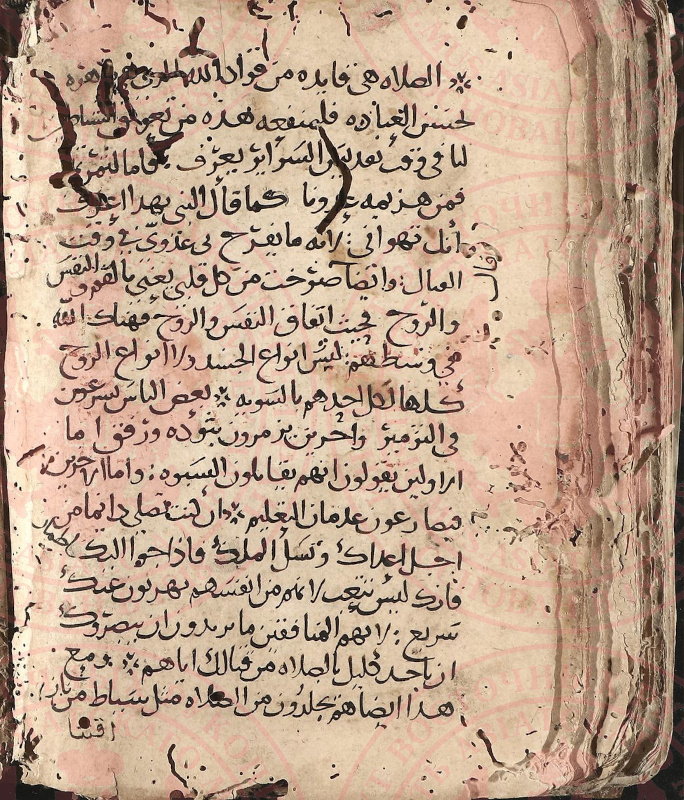 الصلاه هي فايده من قواد الله
لحسن العباده فلمنفعه هذه من تعوق الشياط
لنا في وقت بعد ليس السراير يعرف فاما التمرن
فمن هزيمه عدونا كما قال النبي بهذا اعرف
انك تهواني لانه ما يفرح بي عدوي في وقت
وقال
القتال وايضا صرخت من كل قلبي يعني بالفم والنفس
والروح فحيث اتفاق النفس والروح فهناك الله
في وسطهم ليس انواع الجسد ولا انواع الروح
كلها لكل احد هم بالسويه بعض الناس يسرعون
في التزمير واخرين يزمرون بتؤده ورفق اما
الاولين يقولون انهم يقاتلون السبوه واما الاخرين
فيصارعون عدمان التعليم ان كنت تصلي دايما من
اجل اعداك وتسل الملك فاذا جوا اليك
فانك ليس تتعب لانهم من انفسهم يهربون عنك
سريع لانهم المنافقين ما يريدون ان يبصروك
ان تاخد كليل بالصلاه من قتالك اياهم ومع
هذا ايضا هم يجلدون من الصلاه مثل سياط من نار
اقتنا